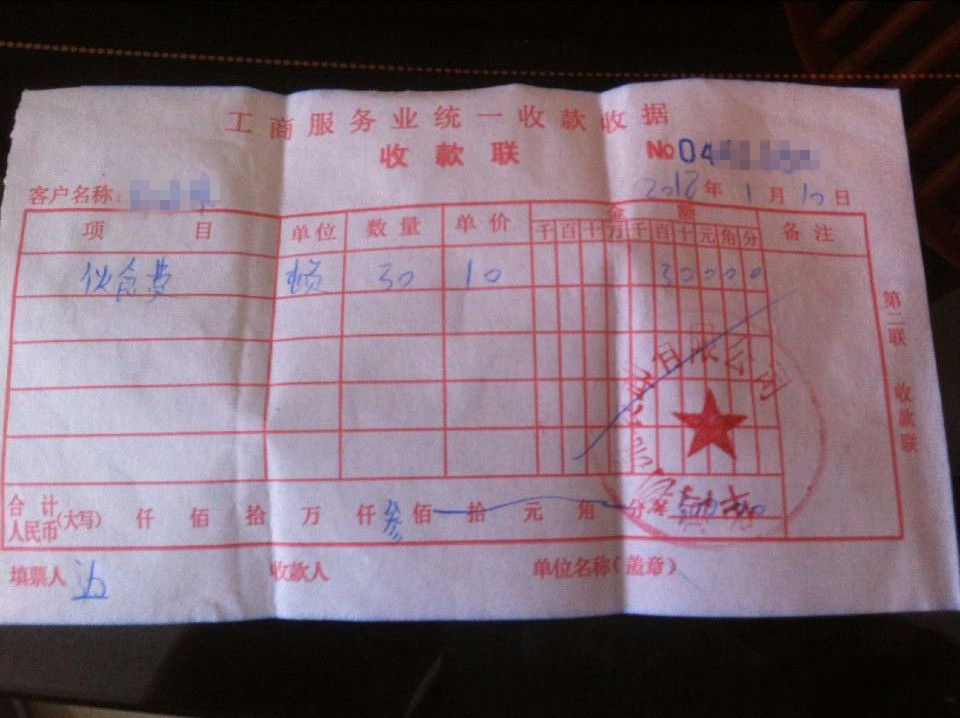 工商服务业统一收款收据
收款联
№04
客户名称:
2012年1月10日
项目 单位 数量 单价 金额 备注
千百十万千百十元角分
伙食费 顿 30 10 30000
合计人民币(大写) 仟 佰 拾 万 仟 叁佰 拾 元 角 分
填票人 收款人 单位名称(盖章)
第二联 收款联
有限公司